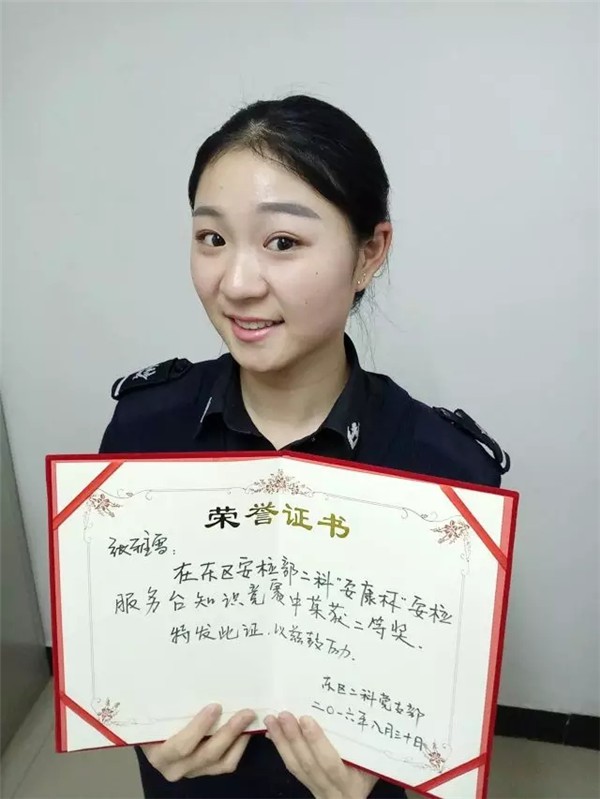 荣誉证书
张雅雪：
在东区安检部二科“安康杯”安检
服务台知识竞赛中荣获二等奖．
特发此证．以兹鼓励．
东区二科党支部
二〇一六年八月三十日